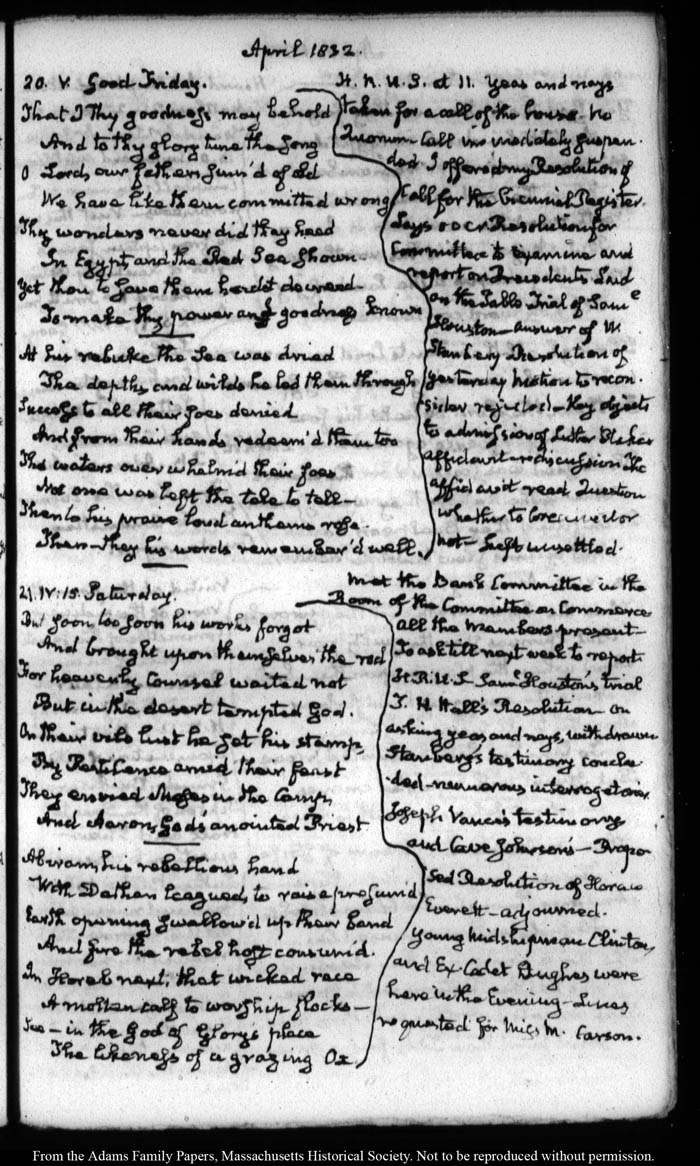 April 1832.
20. V. Good Friday.
That I Thy goodness may behold
And to thy glory tune the song
O Lord, our fathers sinn'd of old
We have like them committed wrong
Thy wonders never did they heed
In Egypt, and the Red Sea shown
Yet thou to save them hadst decreed
To make thy power and goodness known
At his rebuke the Sea was dried
The depths and wilds he led them through
Success to all their foes denied
And from their hands redeem'd them too
The waters overwhelm'd their foes
Not one was left the tale to tell—
Then to his praise loud anthems rose.
Then—they his words remember'd well.
21. IV:15. Saturday.
But soon, too soon his works forgot
And brought upon themselves the rod
For heavenly Counsel waited not
But in the desert tempted God.
On their vile lust he set his stamp,
By Pestilence amid their feast
They envied Moses in the Camp,
And Aaron, God's anointed Priest
Abiram, his rebellious hand
With Dathan leagued, to raise profound
Earth opening swallow'd up their band
And fire the rebel host consum'd.
In Horeb next, that wicked race
A molten calf to worship flocks—
See—in the God of Glory's place
The likeness of a grazing Ox
H. R. U. S. at 11. Yeas and nays
taken for a call of the house. No
Quorum Call immediately suspen-
ded I offered my Resolution of
Call for the Biennial Register.
Resolution for
Committee to examine and
report on Precedents Laid
on the Table Trial of Saml
Houston—answer of W.
Stanbery Resolution of
yesterday Motion to recon-
sider rejected—Key objects
to admission of Luther
affidavit—discussion The
affidavit read Question
whether to be received or
not—Left unsettled.
Met the Bank Committee in the
Room of the Committee on Commerce
all the Members present—
To ask till next week to report
H. R. U. S. Saml Houston's trial
T. H. Hall's Resolution on
asking yeas and nays, withdrawn
Stanbery's testimony conclu-
ded—numerous interrogatories
Joseph Vance's testimony
and Cave Johnson's—Propo
sed Resolution of Horace
Everett—adjourned.
Young Midshipman Clinton,
and Ex-Cadet Hughes were
here in the Evening—Lines
requested for Miss M. Carson.
From the Adams Family Papers, Massachusetts Historical Society. Not to be reproduced without permission.